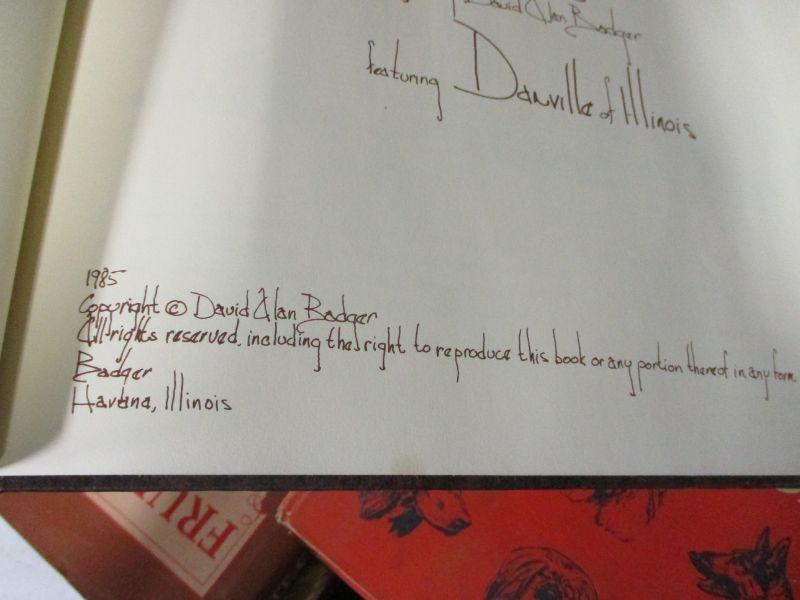 David Alan Badger
featuring Danville of Illinois
1985
Copyright © David Alan Badger
All rights reserved, including the right to reproduce this book or any portion thereof in any form.
Badger
Havana, Illinois
FRUI